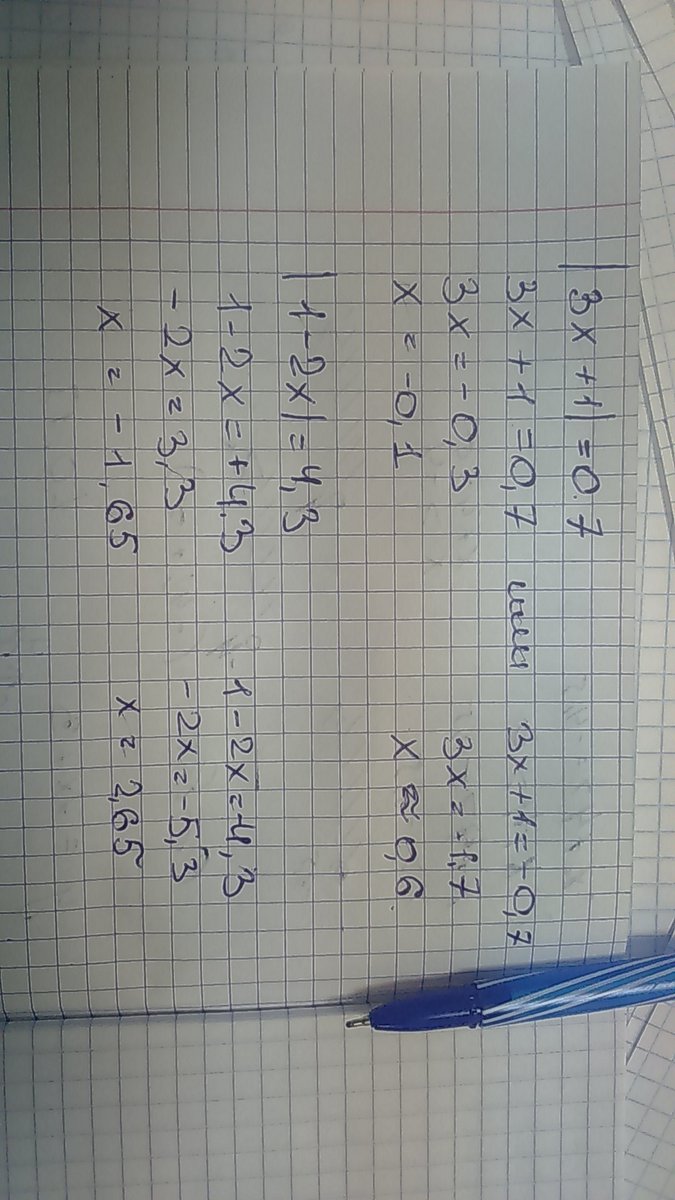 |3x + 1| = 0.7
3x + 1 = 0,7 или 3x + 1 = -0,7
3x = -0,3 3x = -1,7
x = -0,1 x ≈ 0,6
|1 - 2x| = 4,3
1 - 2x = +4,3 1 - 2x = 4,3
-2x = 3,3 -2x = -5,3
x = -1,65 x = 2,65